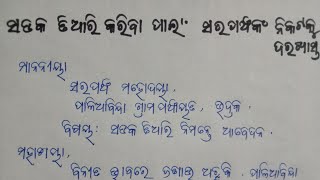 ସଡକ ତିଆରି କରିବା ପାଇଁ ସରପଞ୍ଚଙ୍କ ନିକଟକୁ
ଦରଖାସ୍ତ
ମାନନୀୟା
ସରପଞ୍ଚ ମହୋଦୟା
ପାଳିଆବିନ୍ଧା ଗ୍ରାମ ପଞ୍ଚାୟତ, ଭଦ୍ରକ
ବିଷୟ: ସଡକ ତିଆରି ନିମନ୍ତେ ଆବେଦନ.
ମହାଶୟା,
ବିନୀତ ଭାବରେ ଜଣାଉ ଅଛୁକି ପାଳିଆବିନ୍ଧା